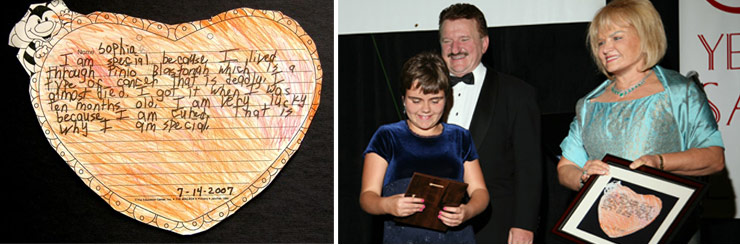 Name Sophia
I am special because I lived
through Pinio Blastomah which is a
type of cancer that is deadly. I
almost died. I got it when I was
ten months old. I am very lucky
because I am cured. That is
why I am special.
7-14-2007
YE
SA